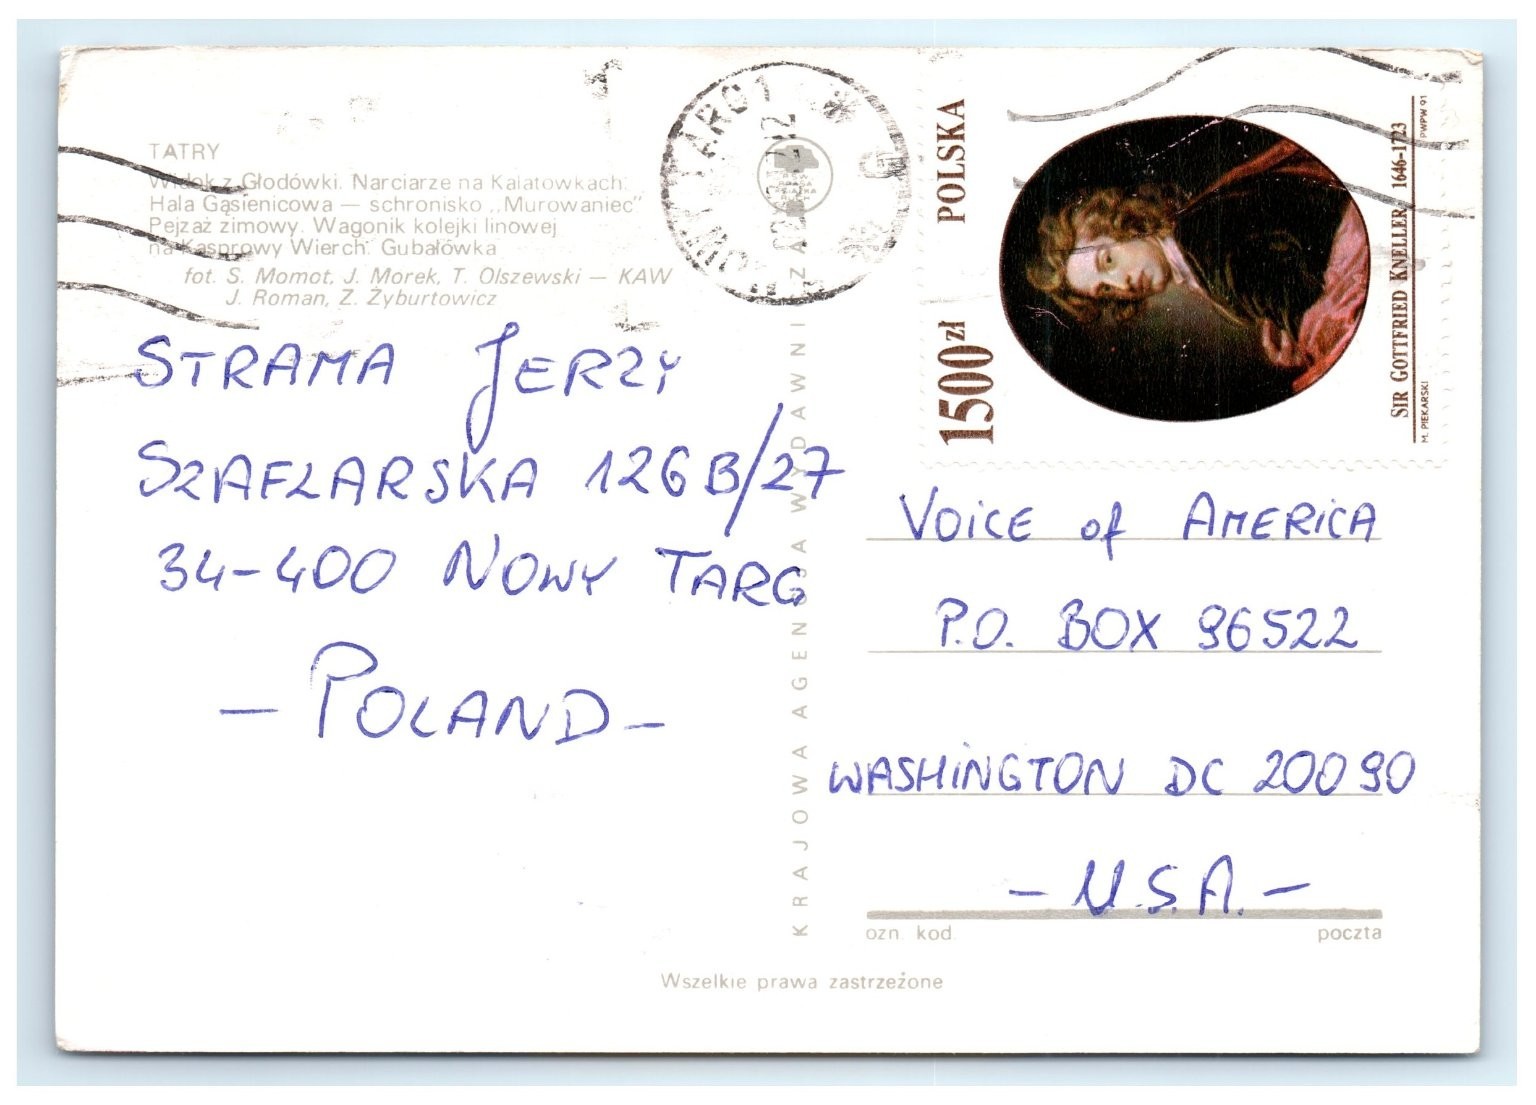 TATRY
Widok z Głodówki. Narciarze na Kalatówkach.
Hala Gąsienicowa — schronisko „Murowaniec”
Pejzaż zimowy. Wagonik kolejki linowej
na Kasprowy Wierch. Gubałówka
fot. S. Momot, J. Morek, T. Olszewski — KAW
J. Roman, Z. Żyburtowicz
STRAMA JERZY
SZAFLARSKA 126B/27
34-400 NOWY TARG
— POLAND —
KRAJOWA AGENCJA WYDAWNICZA
NOWY TARG 1
POLSKA
1500 zł
SIR GOTTFRIED KNELLER 1646-1723
M. PIEKARSKI
PWPW 91
VOiCE of AMERiCA
P.O. BOX 96522
WASHiNGTON DC 20090
— U.S.A. —
ozn. kod.
poczta
Wszelkie prawa zastrzeżone